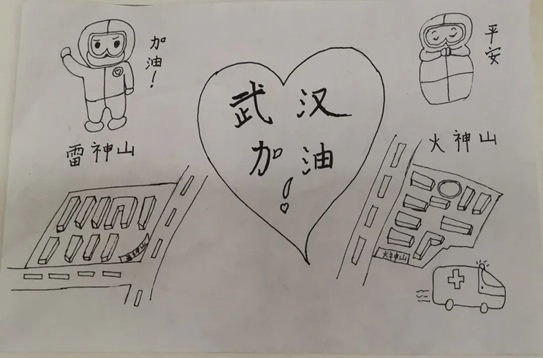 加油！
平安
武汉
加油！
雷神山
火神山
火神山